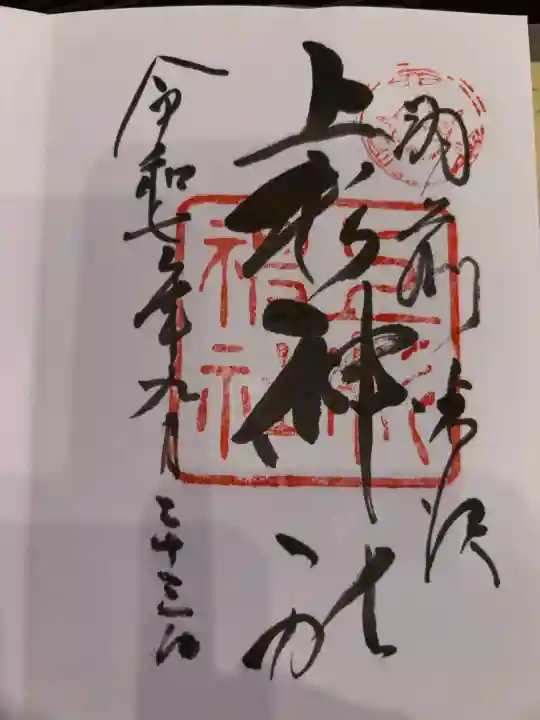 羽前米沢
上杉神社
令和七年九月二十三日